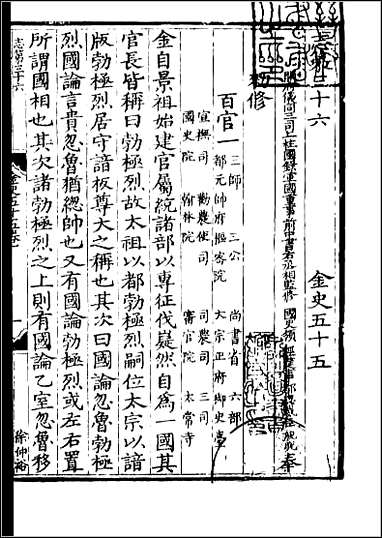 志第三十六
金史五十五
開府儀同三司上柱國錄軍國重事前中書右丞相監修國史領經筵事都總裁臣脫脫奉
勑修
百官一
三師 三公 尚書省 六部
都元帥府 樞密院 大宗正府 御史臺
宣撫司 勸農使司 司農司 三司
國史院 翰林院 審官院 太常寺
金自景祖始建官屬統諸部以專征伐嶷然自為一國其
官長皆稱曰勃極烈故太祖以都勃極烈嗣位太宗以諳
版勃極烈居守諳板尊大之稱也其次曰國論忽魯勃極
烈國論言貴忽魯猶總帥也又有國論勃極烈或左右置
所謂國相也其次諸勃極烈之上則有國論乙室忽魯移
志第三十六
金史五十五卷
徐仲裕